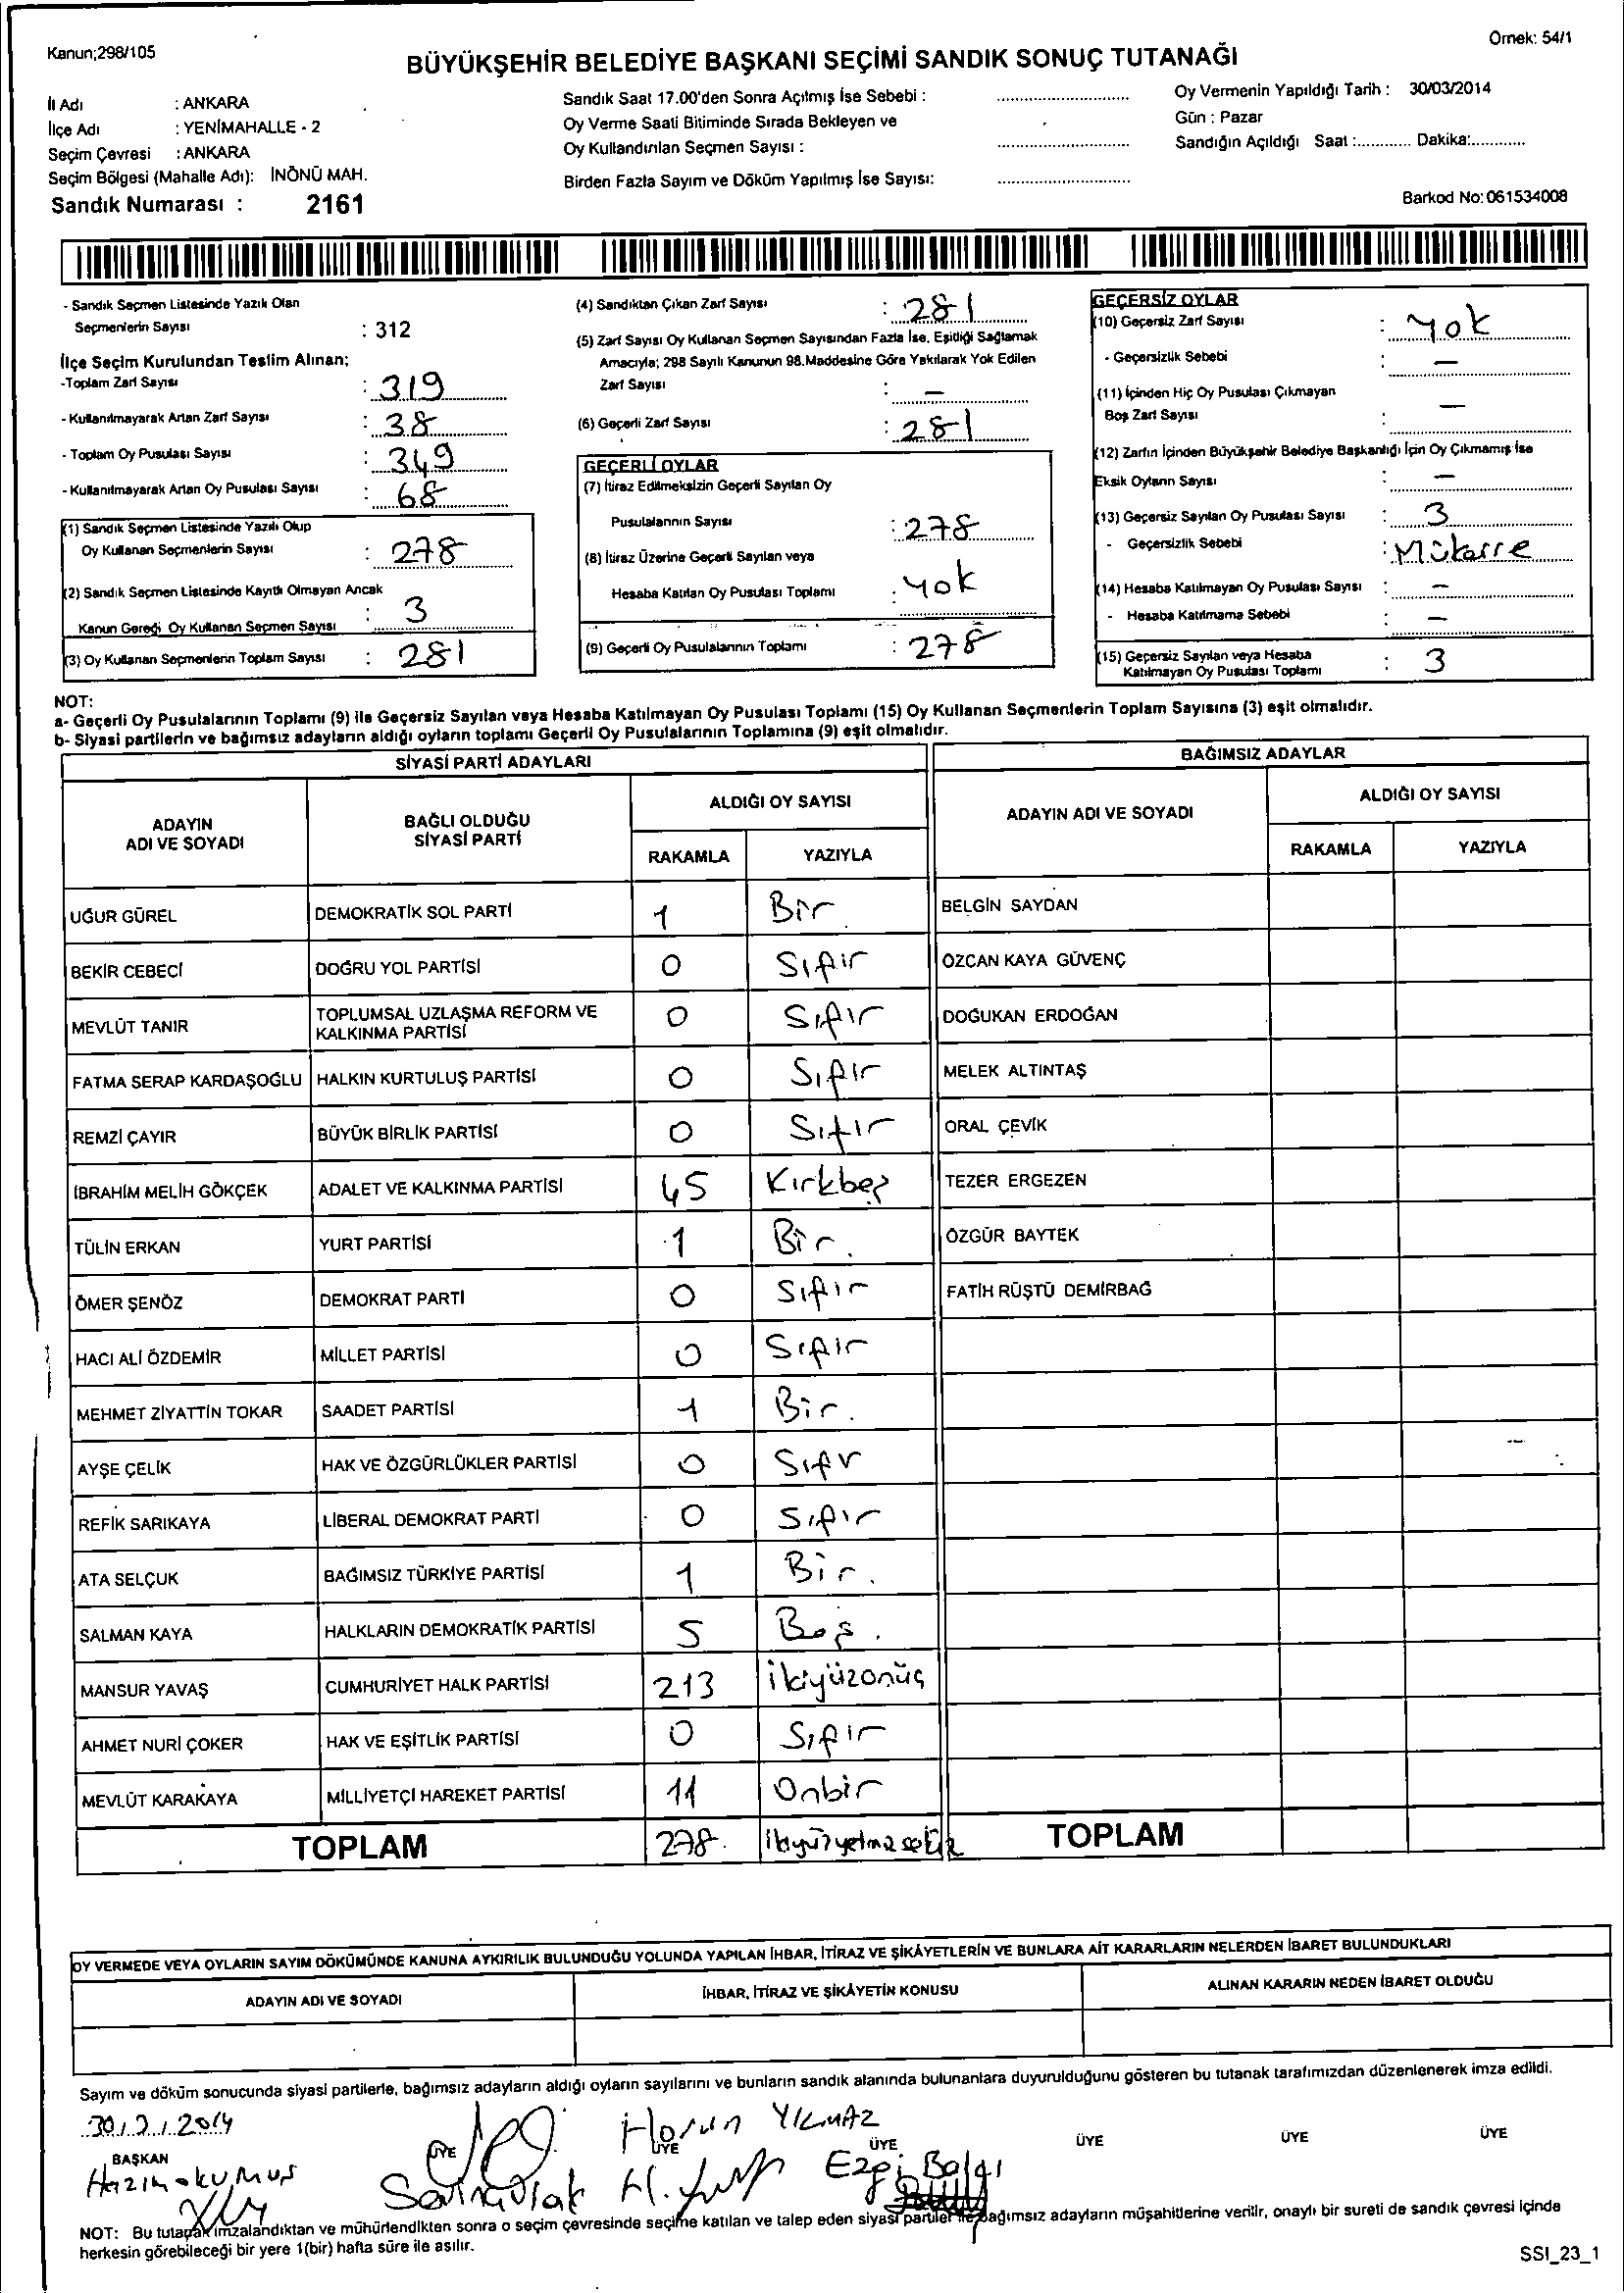 Kanun;298/105
Örnek: 54/1
BÜYÜKŞEHİR BELEDİYE BAŞKANI SEÇİMİ SANDIK SONUÇ TUTANAĞI
İl Adı : ANKARA
İlçe Adı : YENİMAHALLE - 2
Seçim Çevresi : ANKARA
Seçim Bölgesi (Mahalle Adı): İNÖNÜ MAH.
Sandık Numarası : 2161
Sandık Saat 17.00'den Sonra Açılmış İse Sebebi : ..............................
Oy Verme Saati Bitiminde Sırada Bekleyen ve
Oy Kullandırılan Seçmen Sayısı : ..............................
Birden Fazla Sayım ve Döküm Yapılmış İse Sayısı: ..............................
Oy Vermenin Yapıldığı Tarih : 30/03/2014
Gün : Pazar
Sandığın Açıldığı Saat :............ Dakika:............
Barkod No: 061534008
- Sandık Seçmen Listesinde Yazılı Olan
Seçmenlerin Sayısı : 312
İlçe Seçim Kurulundan Teslim Alınan;
-Toplam Zarf Sayısı : 319
- Kullanılmayarak Artan Zarf Sayısı : 38
- Toplam Oy Pusulası Sayısı : 349
- Kullanılmayarak Artan Oy Pusulası Sayısı : 68
(1) Sandık Seçmen Listesinde Yazılı Olup
Oy Kullanan Seçmenlerin Sayısı : 278
(2) Sandık Seçmen Listesinde Kayıtlı Olmayan Ancak
Kanun Gereği Oy Kullanan Seçmen Sayısı : 3
(3) Oy Kullanan Seçmenlerin Toplam Sayısı : 281
(4) Sandıktan Çıkan Zarf Sayısı : 281
(5) Zarf Sayısı Oy Kullanan Seçmen Sayısından Fazla İse, Eşitliği Sağlamak
Amacıyla; 298 Sayılı Kanunun 98.Maddesine Göre Yakılarak Yok Edilen
Zarf Sayısı : -
(6) Geçerli Zarf Sayısı : 281
GEÇERLİ OYLAR
(7) İtiraz Edilmeksizin Geçerli Sayılan Oy
Pusulalarının Sayısı : 278
(8) İtiraz Üzerine Geçerli Sayılan veya
Hesaba Katılan Oy Pusulası Toplamı : Yok
(9) Geçerli Oy Pusulalarının Toplamı : 278
GEÇERSİZ OYLAR
(10) Geçersiz Zarf Sayısı : Yok
- Geçersizlik Sebebi : -
(11) İçinden Hiç Oy Pusulası Çıkmayan
Boş Zarf Sayısı : -
(12) Zarfın İçinden Büyükşehir Belediye Başkanlığı İçin Oy Çıkmamış İse
Eksik Oyların Sayısı : -
(13) Geçersiz Sayılan Oy Pusulası Sayısı : 3
- Geçersizlik Sebebi : Mükerre
(14) Hesaba Katılmayan Oy Pusulası Sayısı : -
- Hesaba Katılmama Sebebi : -
(15) Geçersiz Sayılan veya Hesaba
Katılmayan Oy Pusulası Toplamı : 3
NOT:
a- Geçerli Oy Pusulalarının Toplamı (9) ile Geçersiz Sayılan veya Hesaba Katılmayan Oy Pusulası Toplamı (15) Oy Kullanan Seçmenlerin Toplam Sayısına (3) eşit olmalıdır.
b- Siyasi partilerin ve bağımsız adayların aldığı oyların toplamı Geçerli Oy Pusulalarının Toplamına (9) eşit olmalıdır.
SİYASİ PARTİ ADAYLARI
BAĞIMSIZ ADAYLAR
ADAYIN
ADI VE SOYADI
BAĞLI OLDUĞU
SİYASİ PARTİ
ALDIĞI OY SAYISI
RAKAMLA YAZIYLA
ADAYIN ADI VE SOYADI
ALDIĞI OY SAYISI
RAKAMLA YAZIYLA
UĞUR GÜREL DEMOKRATİK SOL PARTİ 1 Bir BELGİN SAYDAN
BEKİR CEBECİ DOĞRU YOL PARTİSİ 0 Sıfır ÖZCAN KAYA GÜVENÇ
MEVLÜT TANIR TOPLUMSAL UZLAŞMA REFORM VE
KALKINMA PARTİSİ 0 Sıfır DOĞUKAN ERDOĞAN
FATMA SERAP KARDAŞOĞLU HALKIN KURTULUŞ PARTİSİ 0 Sıfır MELEK ALTINTAŞ
REMZİ ÇAYIR BÜYÜK BİRLİK PARTİSİ 0 Sıfır ORAL ÇEVİK
İBRAHİM MELİH GÖKÇEK ADALET VE KALKINMA PARTİSİ 45 Kırkbeş TEZER ERGEZEN
TÜLİN ERKAN YURT PARTİSİ 1 Bir. ÖZGÜR BAYTEK
ÖMER ŞENÖZ DEMOKRAT PARTİ 0 Sıfır FATİH RÜŞTÜ DEMİRBAĞ
HACI ALİ ÖZDEMİR MİLLET PARTİSİ 0 Sıfır
MEHMET ZİYATTİN TOKAR SAADET PARTİSİ 1 Bir.
AYŞE ÇELİK HAK VE ÖZGÜRLÜKLER PARTİSİ 0 Sıfır
REFİK SARIKAYA LİBERAL DEMOKRAT PARTİ 0 Sıfır
ATA SELÇUK BAĞIMSIZ TÜRKİYE PARTİSİ 1 Bir.
SALMAN KAYA HALKLARIN DEMOKRATİK PARTİSİ 5 Beş.
MANSUR YAVAŞ CUMHURİYET HALK PARTİSİ 213 ikiyüzonüç
AHMET NURİ ÇOKER HAK VE EŞİTLİK PARTİSİ 0 Sıfır
MEVLÜT KARAKAYA MİLLİYETÇİ HAREKET PARTİSİ 11 Onbir
TOPLAM 278. TOPLAM
OY VERMEDE VEYA OYLARIN SAYIM DÖKÜMÜNDE KANUNA AYKIRILIK BULUNDUĞU YOLUNDA YAPILAN İHBAR, İTİRAZ VE ŞİKÂYETLERİN VE BUNLARA AİT KARARLARIN NELERDEN İBARET BULUNDUKLARI
ADAYIN ADI VE SOYADI İHBAR, İTİRAZ VE ŞİKÂYETİN KONUSU ALINAN KARARIN NEDEN İBARET OLDUĞU
Sayım ve döküm sonucunda siyasi partilerle, bağımsız adayların aldığı oyların sayılarını ve bunların sandık alanında bulunanlara duyurulduğunu gösteren bu tutanak tarafımızdan düzenlenerek imza edildi.
30/3/2014
Harun YILMAZ
BAŞKAN ÜYE ÜYE ÜYE ÜYE ÜYE ÜYE
Hazım okumuş
Ezgi
NOT: Bu tutanak imzalandıktan ve mühürlendikten sonra o seçim çevresinde seçime katılan ve talep eden siyasi partiler ile bağımsız adayların müşahitlerine verilir, onaylı bir sureti de sandık çevresi içinde
herkesin görebileceği bir yere 1(bir) hafta süre ile asılır.
SSI_23_1